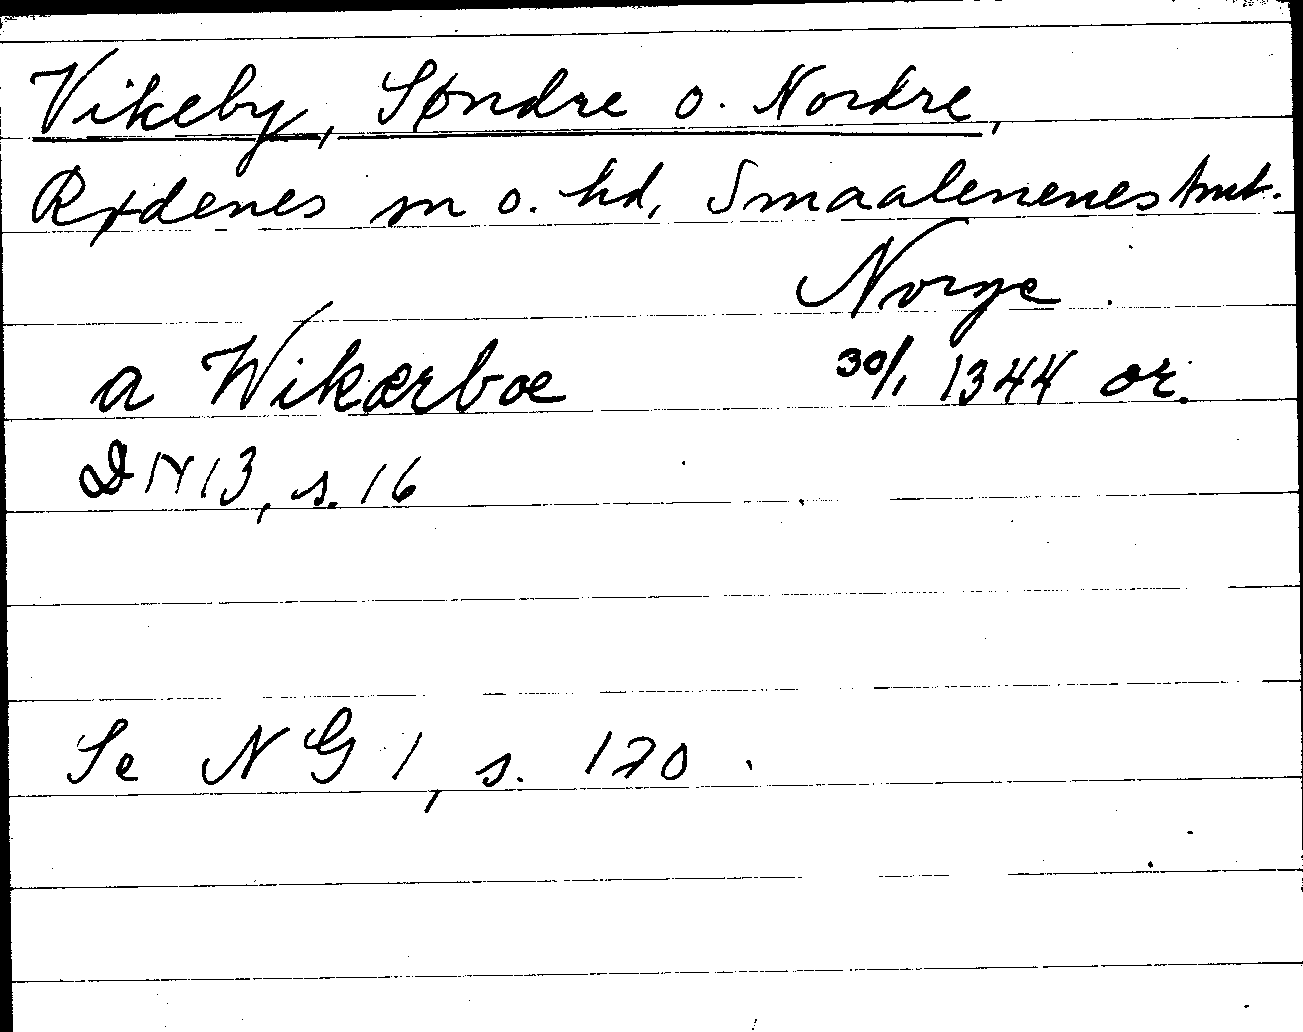 Vikeby, Søndre o. Nordre,
Rødenes sn o. hd, Smaalenenes Amt.
Norge.
a Wikærbœ 30/1 1344 or.
DN 13, s. 16
Se NG 1, s. 120.